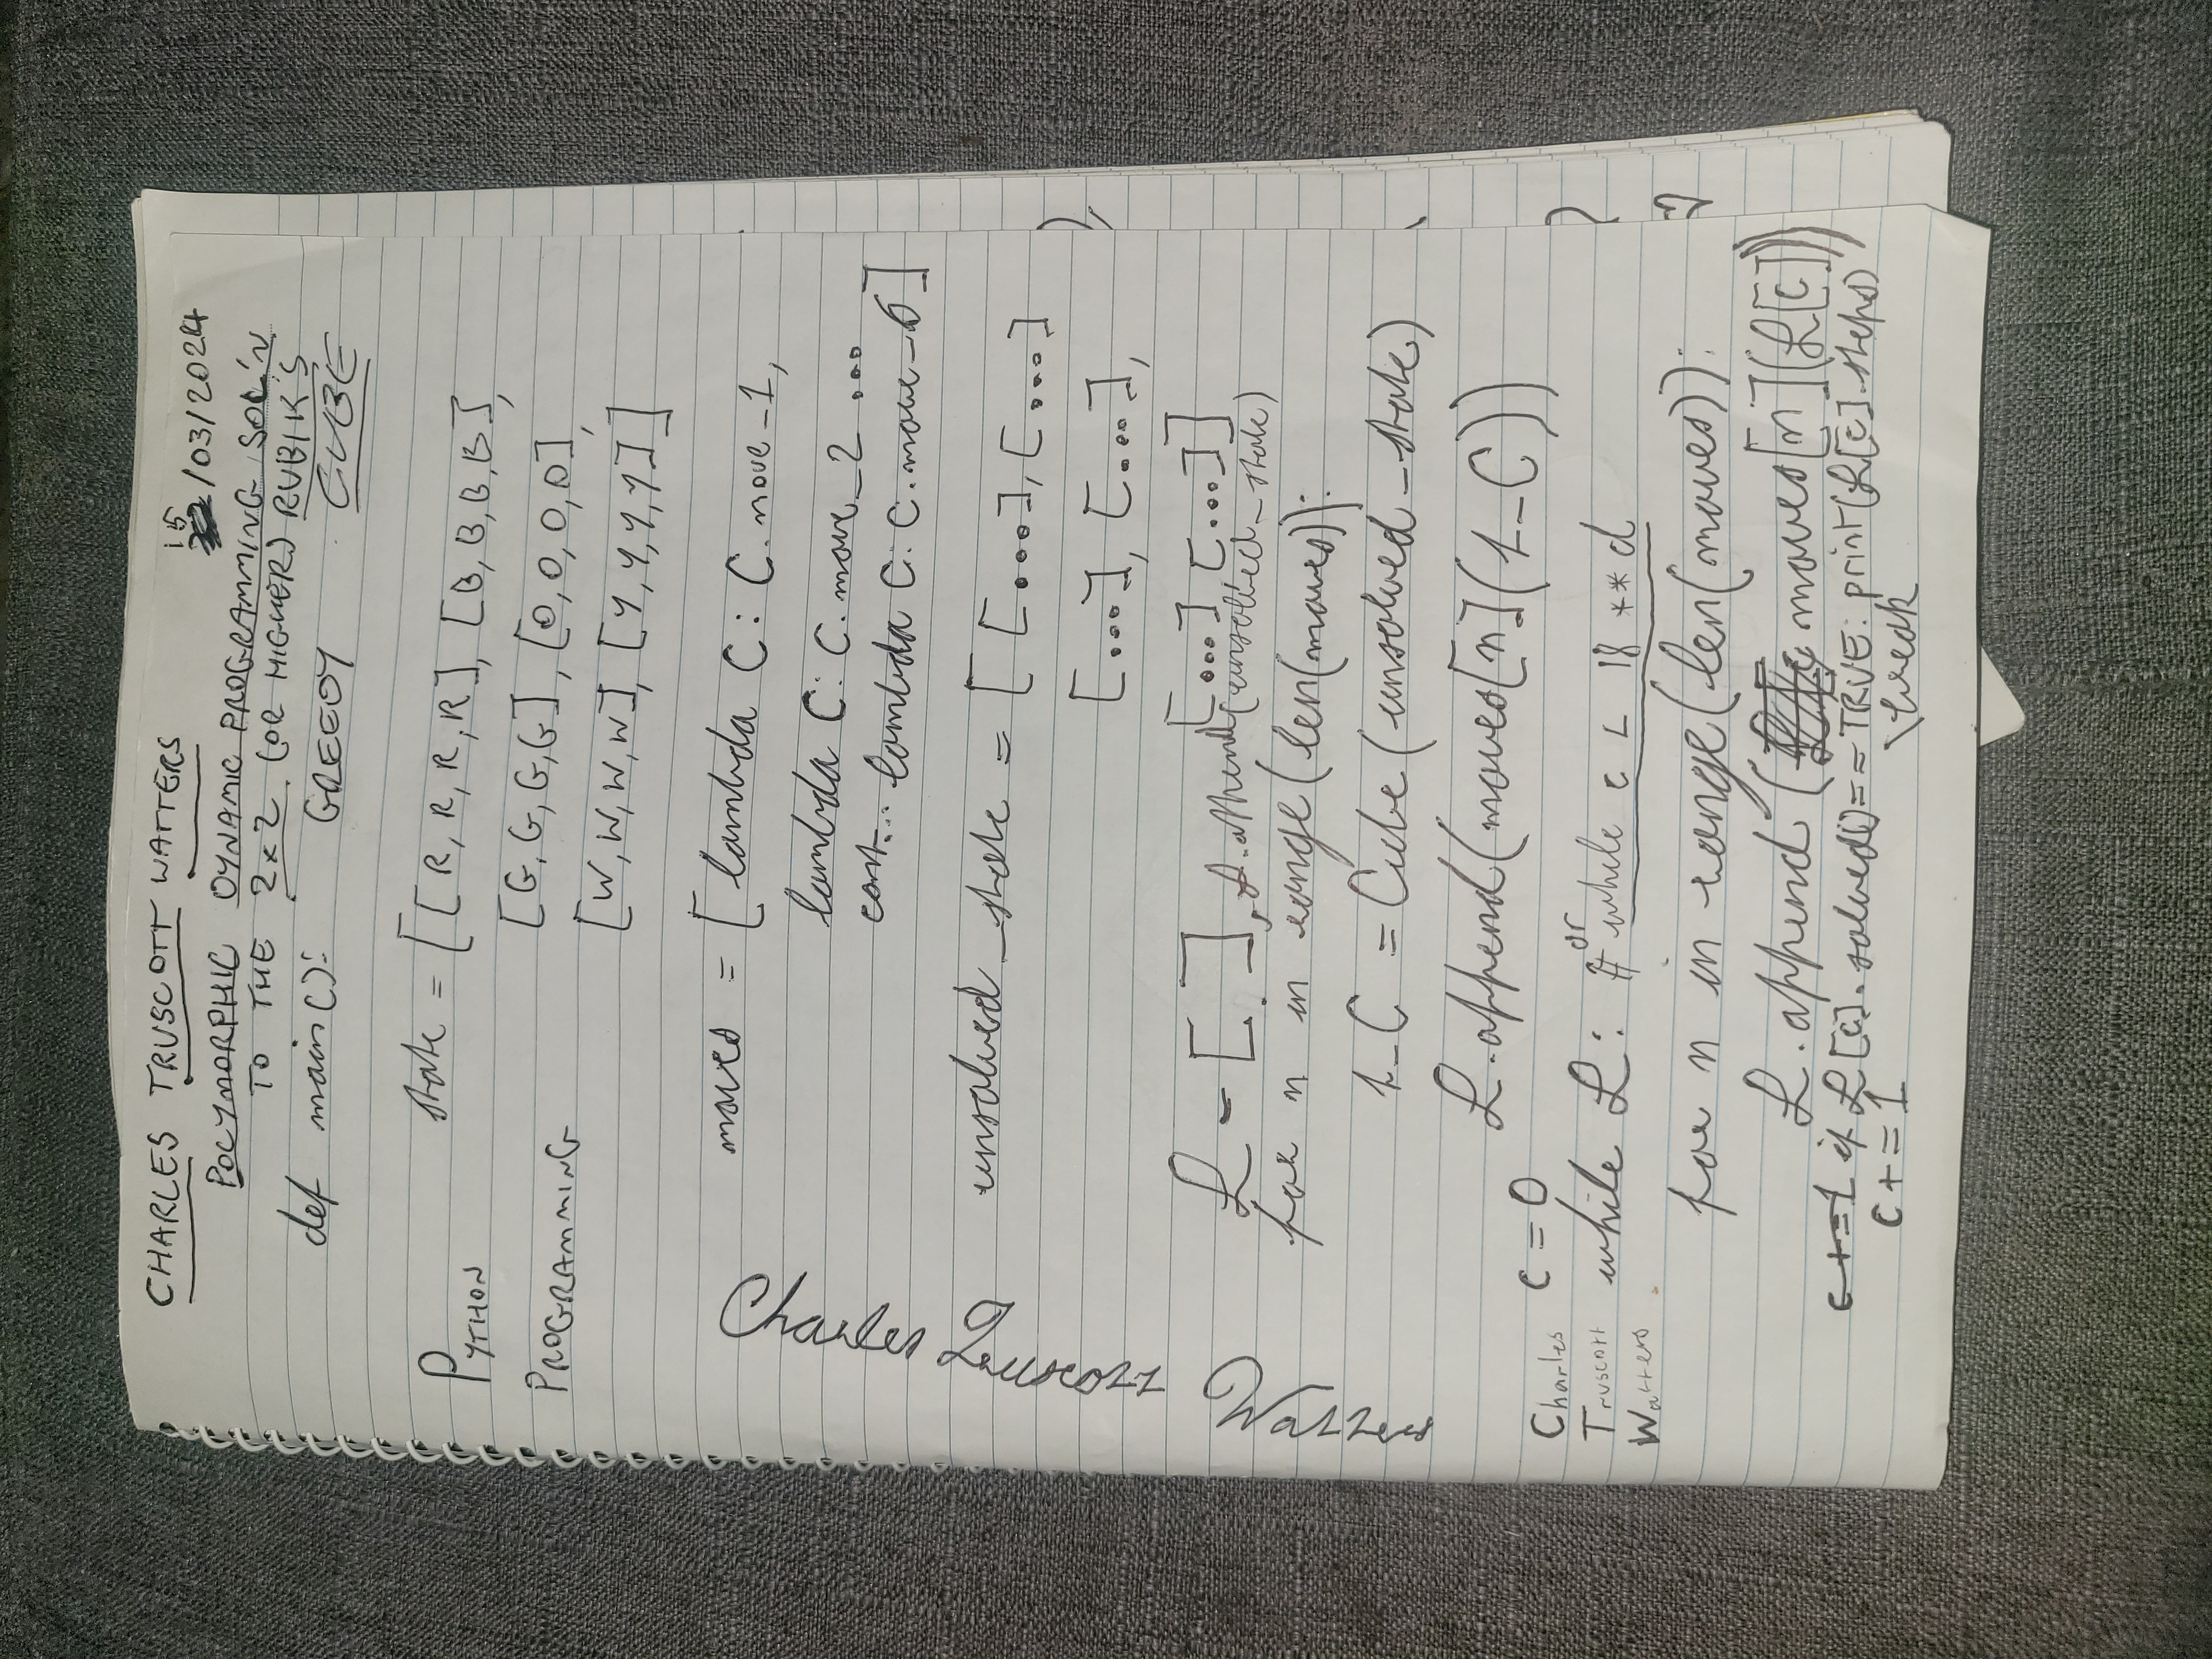 CHARLES TRUSCOTT WATTERS
15/03/2024
POLYMORPHIC DYNAMIC PROGRAMMING SOL'N
TO THE 2x2 (OR HIGHER) RUBIK'S
CUBE
def main():
GREEDY
PYTHON
PROGRAMMING
state = [[R, R, R, R], [B, B, B, B],
[G, G, G, G], [O, O, O, O],
[W, W, W, W], [Y, Y, Y, Y]]
moves = [lambda C: C.move_1,
lambda C: C.move_2 ...
cont... lambda C: C.move_6]
Charles Truscott Watters
unsolved_state = [[...], [...]
[...], [...],
[...], [...]]
L = [ ], L.append(unsolved_state)
for n in range(len(moves)):
1_C = Cube(unsolved_state)
L.append(moves[n](1_C))
c = 0
Charles
Truscott
Watters
while L: # or while c < 18 ** d
for n in range(len(moves)):
L.append (moves[n](L[c]))
c+=1 if L[c].solved() == TRUE: print(L[c].steps)
\break
c+=1